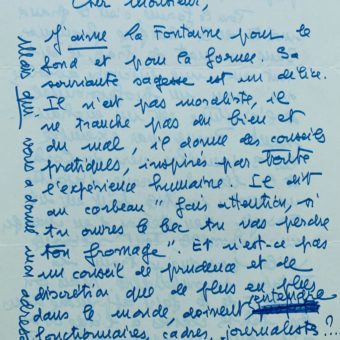 Cher Monsieur,
J'aime La Fontaine pour le
fond et pour la forme. Sa
souriante sagesse est un délice.
Il n'est pas moraliste, il
ne tranche pas du bien et
du mal, il donne des conseils
pratiques, inspirés par toute
l'expérience humaine. Il dit
au corbeau "fais attention, si
tu ouvres le bec tu vas perdre
ton fromage". Et n'est-ce pas
un conseil de prudence et de
discrétion que de plus en plus
dans le monde, doivent entendre
fonctionnaires, cadres, journalistes ?..
Mais qui vous a donné mon adresse